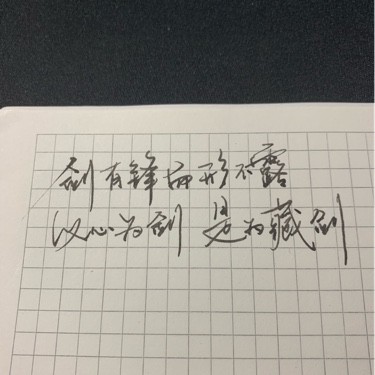 剑有锋而形不露
以心为剑 是为藏剑